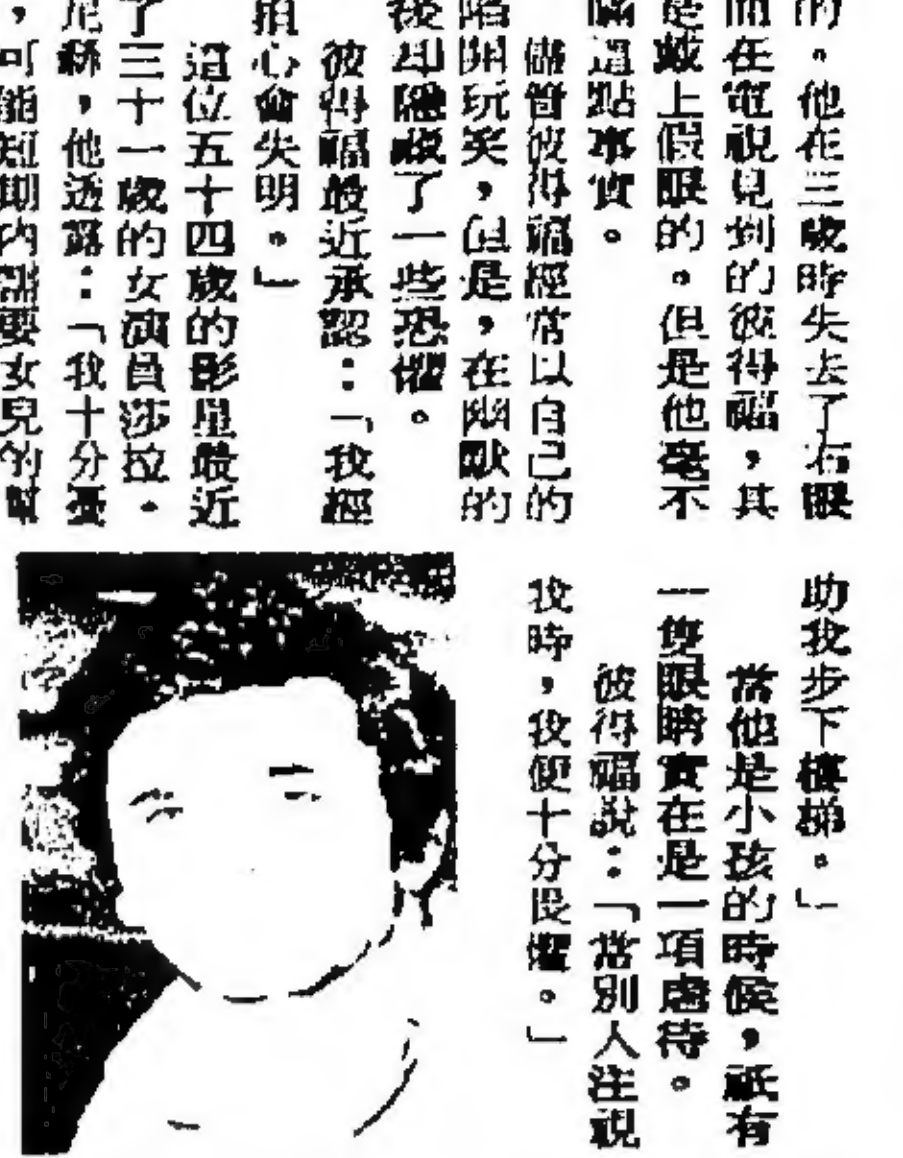 的。他在三歲時失去了右眼
而在電視見到的彼得福,其
是戴上假眼的。但是他毫不
瞞這點事實。
儘管彼得福經常以自己的
陷開玩笑,但是,在幽默的
後却隱藏了一些恐懼。
彼得福最近承認:「我經
担心會失明。」
這位五十四歲的影星最近
了三十一歲的女演員莎拉·
尼絲,他透露:「我十分憂
,可能短期內需要女兒的幫
助我步下樓梯。」
當他是小孩的時候,祇有
一隻眼睛實在是一項虐待。
彼得福說:「當別人注視
我時,我便十分畏懼。」